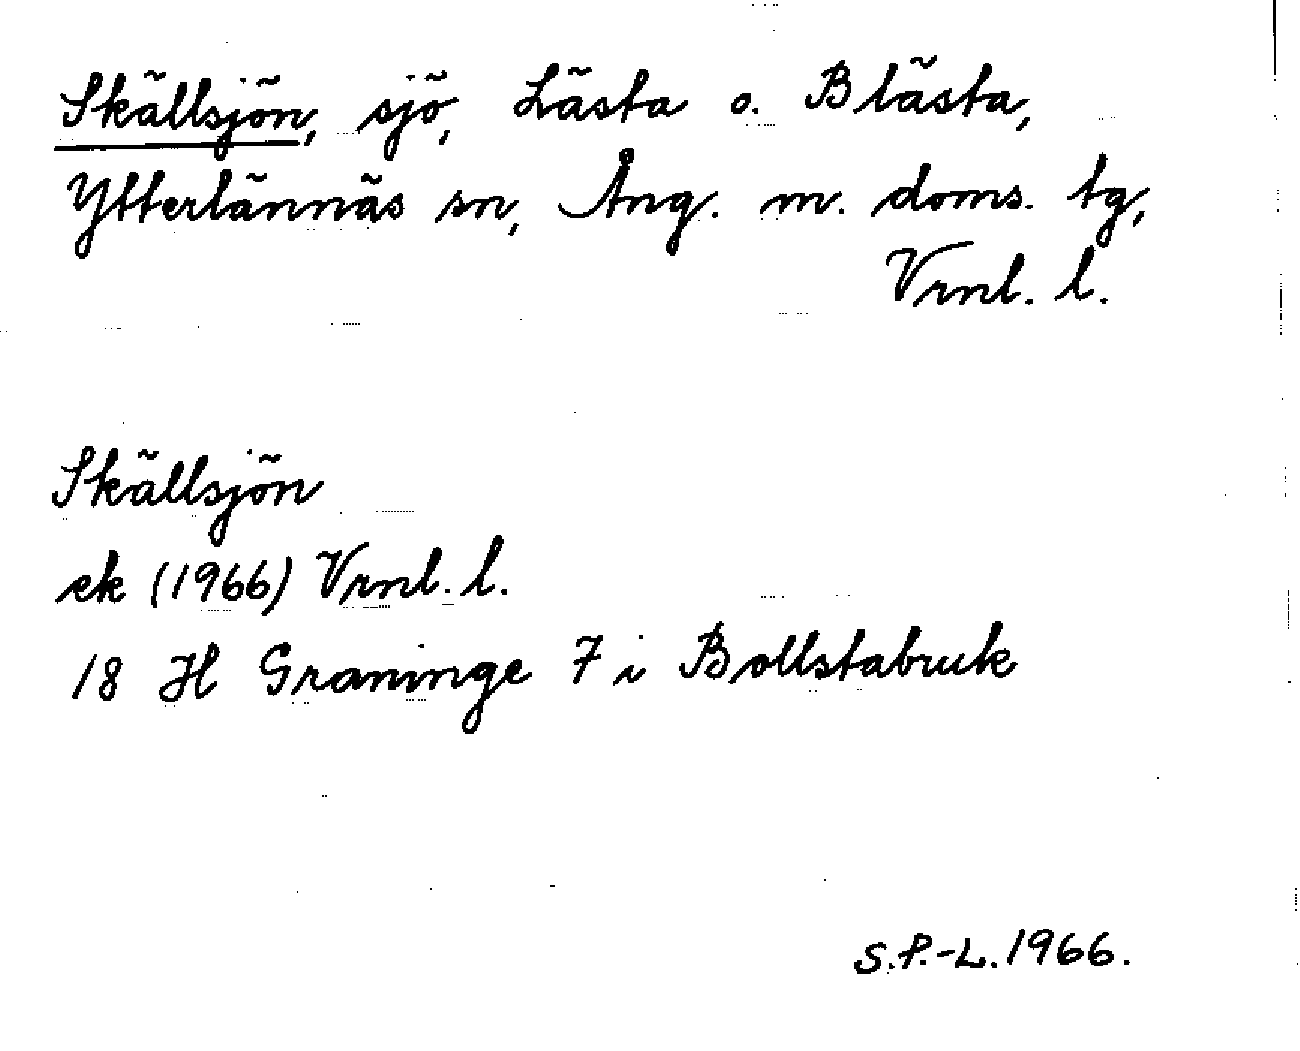 Skällsjön, sjö, Lästa o. Blästa,
Ytterlännäs sn, Ång. m. doms. tg,
Vrnl. l.
Skällsjön
ek (1966) Vrnl. l.
18 H Graninge 7 i Bollstabruk
S.P.-L. 1966.